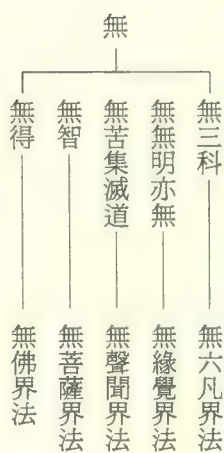 無
無三科
無六凡界法
無無明亦無
無緣覺界法
無苦集滅道
無聲聞界法
無智
無菩薩界法
無得
無佛界法